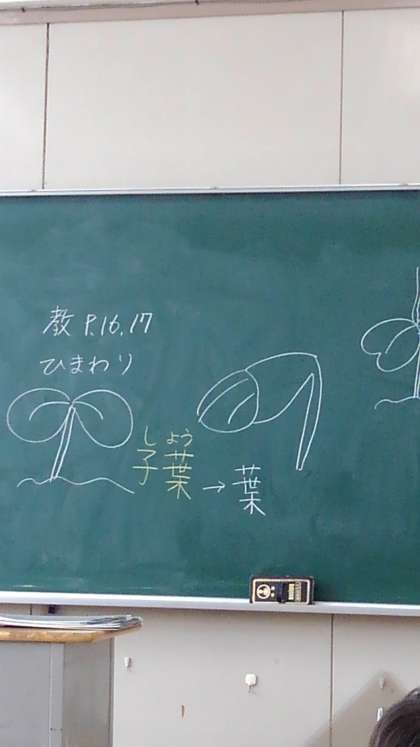 教 P.16,17
ひまわり
しよう
子葉→葉